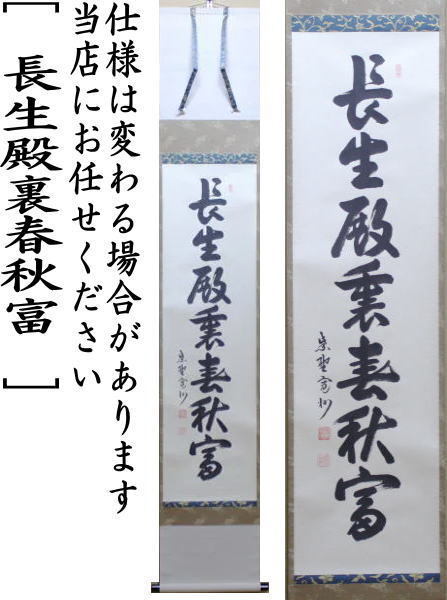 仕様は変わる場合があります
当店にお任せください
[長生殿裏春秋富]
長生殿裏春秋富
長生殿裏春秋富